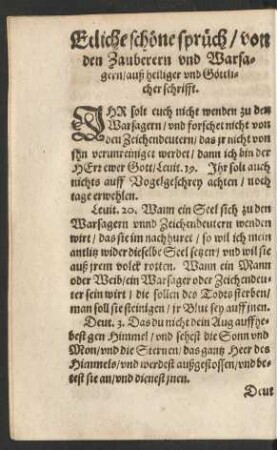 Etliche schöne sprüch / von
den Zauberern vnd Warsa-
gern / auß heiliger vnd Göttli-
cher schrifft.
IHR solt euch nicht wenden zu den
Warsagern / vnd forschet nicht von
den Zeichendeutern / das jr nicht von
jhn verunreiniget werdet / dann ich bin der
HErr ewer Gott / Leuit. 19. Ihr solt auch
nichts auff Vogelgeschrey achten / noch
tage erwehlen.
Leuit. 20. Wann ein Seel sich zu den
Warsagern vnnd Zeichendeutern wenden
wirt / das sie jm nachhuret / so wil ich mein
antlitz wider dieselbe Seel setzen / vnd wil sie
auß jrem volck rotten. Wann ein Mann
oder Weib / ein Warsager oder Zeichendeu-
ter sein wirt / die sollen des Todts sterben /
man soll sie steinigen / jr Blut sey auff jnen.
Deut. 3. Das du nicht dein Aug auffhe-
best gen Himmel / vnd sehest die Sonn vnd
Mon / vnd die Sternen / das gantz Heer des
Himmels / vnd werdest außgestossen / vnd be-
test sie an / vnd dienest jnen.
Deut